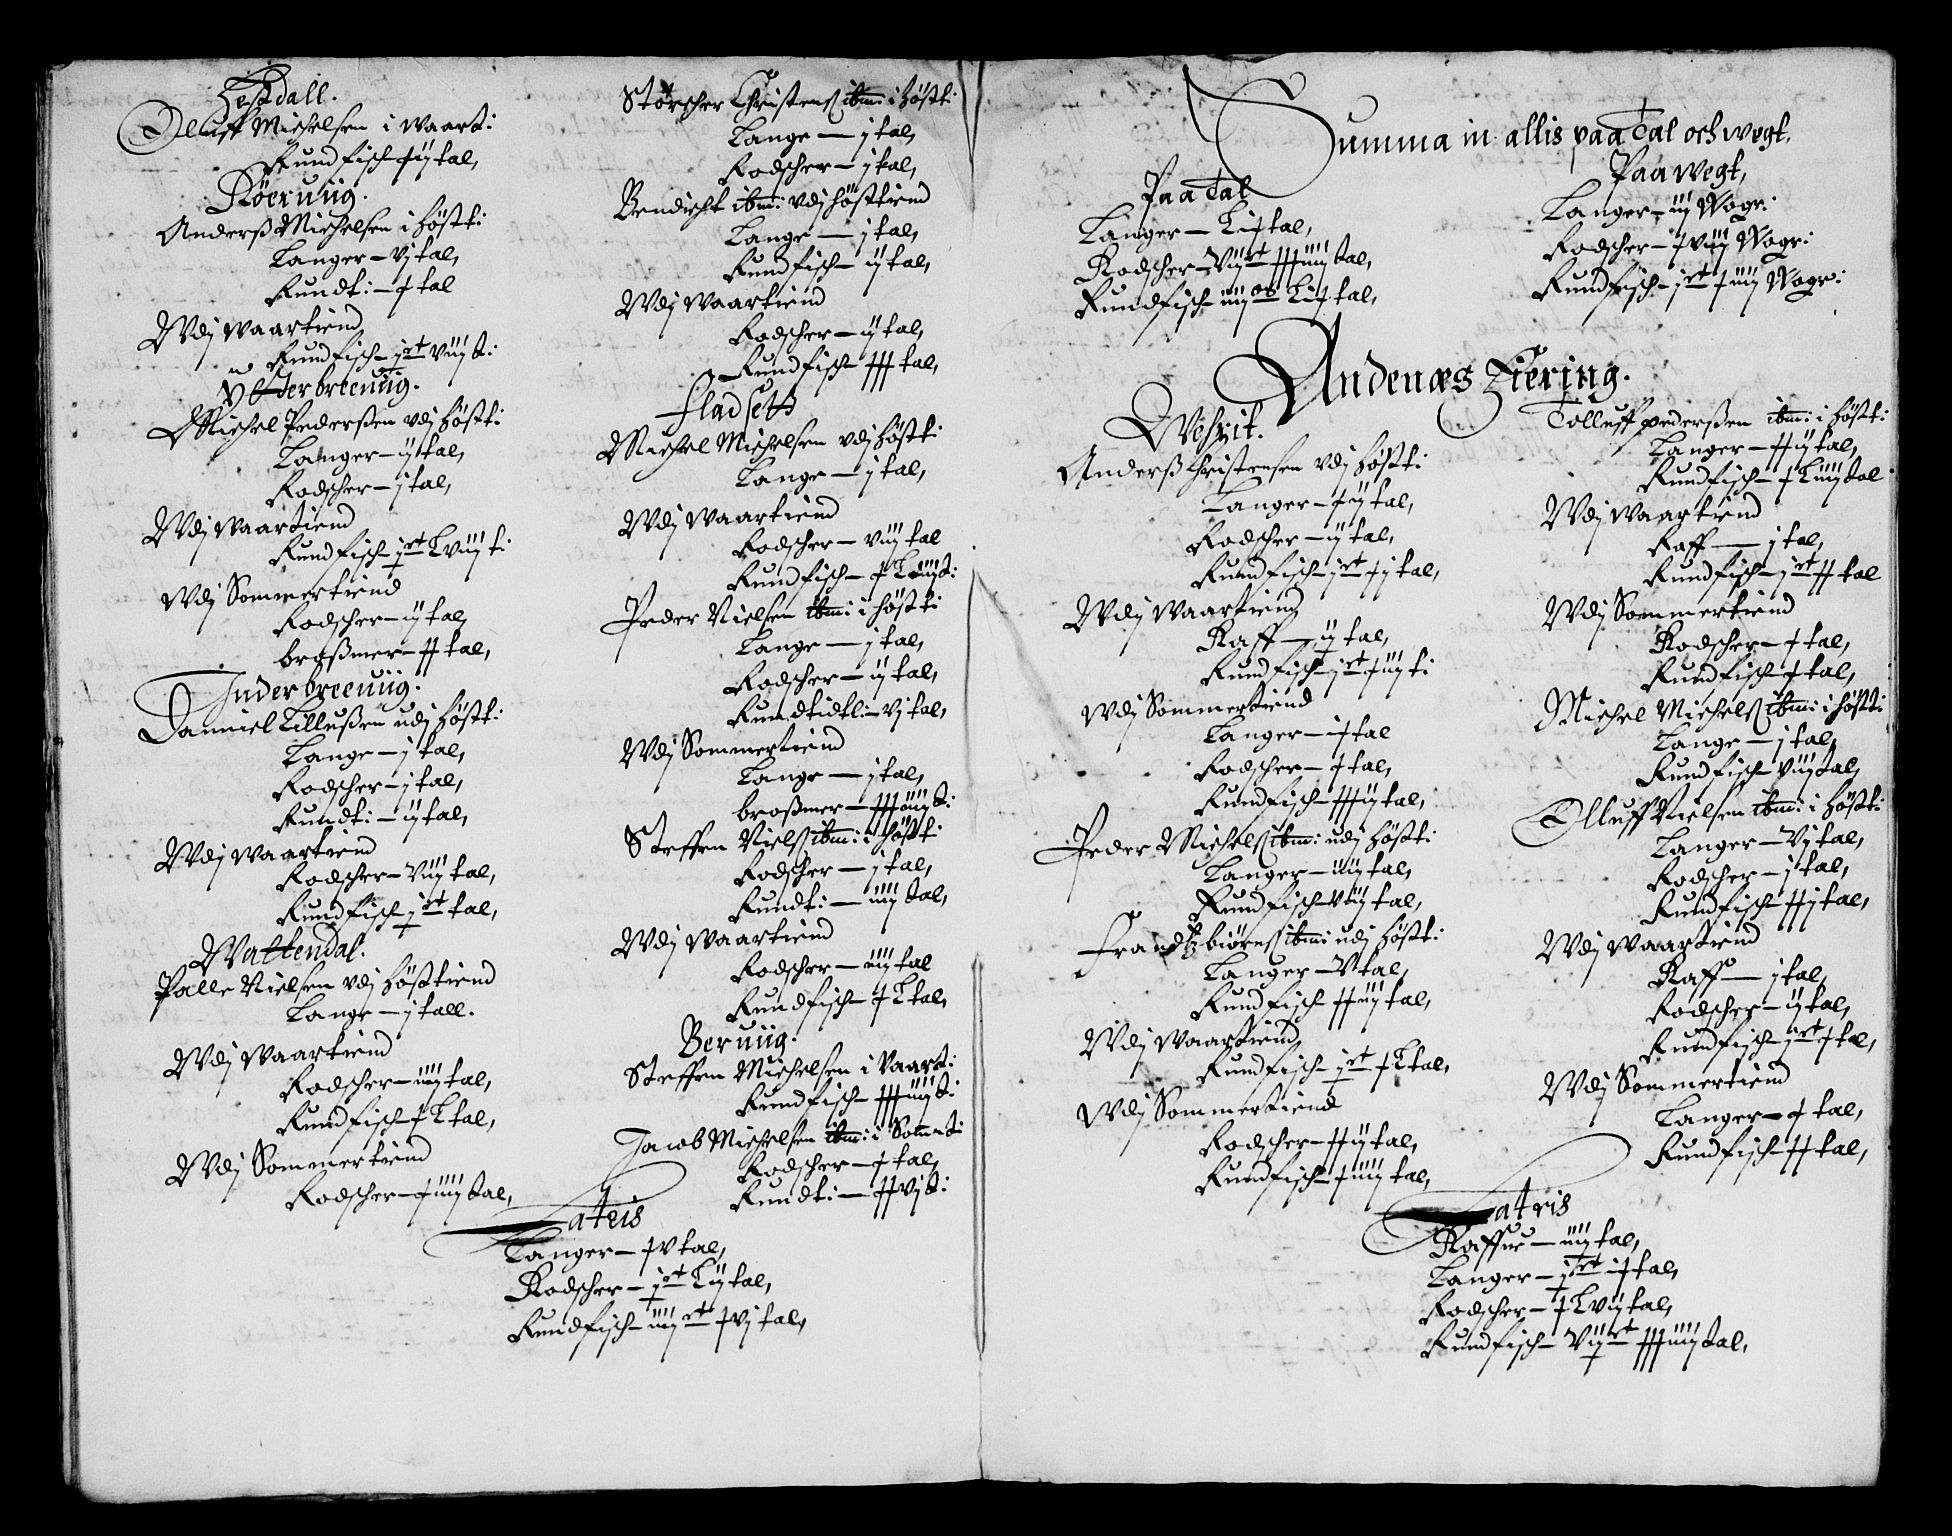 Heszdall.
Olluff Michelsen i waart:
Rundfisch ‒ xij tal,
Röeruiig.
Anderß Michelsen i höstt:
Langer ‒ vj tal,
Rundt: ‒ x tal
Wdj waartiend
Rundfisch ‒ j rt viij t:
Ytterbreeuiig.
Michel Pederßen vdj höstt:
Langer ‒ ij tal,
Rodscher ‒ j tal,
Wdj waartiend
Rundfisch ‒ j rt Lviij t:
Wdj Sommertiend
Rodscher ‒ ij tal,
broßmer ‒ xx tal,
Inderbreeuiig.
Danniel Lillußen udj höstt:
Lange ‒ j tal,
Rodscher ‒ j tal,
Rundt: ‒ ij tal,
Wdj waartiend
Rodscher ‒ viij tal,
Rundfisch ‒ j rt tal,
Wattendal.
Palle Nielsen vdj hösttiend
Lange ‒ j tall.
Wdj waartiend
Rodscher ‒ iiij tal,
Rundfisch ‒ xL tal,
Wdj Sommertiend
Rodscher ‒ xiiij tal,
Störscher Christens ibm: i höstt:
Lange ‒ j tal,
Rodscher ‒ j tal,
Bendicht ibm: vdj höstttiend
Lange ‒ j tal,
Rundfisch ‒ ij tal,
Wdj waartiend
Rodscher ‒ ij tal,
Rundfisch ‒ xxx tal,
Fladseth
Michel Michelsen vdj höstt:
Lange ‒ j tal,
Wdj waartiend
Rodscher ‒ viij tal
Rundfisch ‒ xLviij t:
Peder Nielsen ibm: i höstt:
Lange ‒ j tal,
Rodscher ‒ ij tal,
Rundtidtl: ‒ vj tal,
Wdj Sommertiend
Lange ‒ j tal,
broßmer ‒ xxxiiij t:
Steffen Niels ibm: i höstt
Rodscher ‒ j tal,
Rundt: ‒ iiij tal,
Wdj waartiend
Rodscher ‒ iiij tal
Rundfisch ‒ xL tal,
Beruiig.
Steffen Michelsen i Vaart:
Rundfisch ‒ xxxiiij t:
Jacob Michelsen ibm: i Som̄t:
Rodscher ‒ x tal,
Rundt: ‒ xxvj t:
Latris
Langer ‒ xv tal,
Rodscher ‒ j rt Lij tal,
Rundfisch ‒ iiij rt xvj tal,
Summa in allis paa Tal och wegt.
Paa Tal
Langer ‒ Lix tal,
Rodscher ‒ vij rt xxxiiij tal,
Rundfisch ‒ iiij os Lix tal,
Paa wegt,
Langer ‒ iij Wogr:
Rodscher ‒ xviij Wogr:
Rundfisch ‒ j rt xiiij Wogr:
Andenæs Fiering.
Wehrit.
Anderß Christensen vdj höstt:
Langer ‒ xij tal,
Rodscher ‒ ij tal,
Rundfisch ‒ j rt xj tal,
Wdj waartiend
Raff ‒ ij tal,
Rundfisch ‒ j rt xiij t:
Wdj Sommertiend
Langer ‒ ix tal
Rodscher ‒ x tal,
Rundfisch ‒ xxxij tal,
Peder Michels ibm: udj höstt:
Langer ‒ iiij tal,
Rundfisch ‒ viij tal,
Frandtz biörns ibm: udj höstt:
Langer ‒ V tal,
Rundfisch ‒ xxiij tal,
Wdj waartiend
Rundfisch ‒ j rt xL tal,
Wdj Sommertiend
Rodscher ‒ xxij tal,
Rundfisch ‒ xiiij tal,
Tolluff pederßen ibm: i höstt:
Langer ‒ xxij tal,
Rundfisch ‒ xLiiij tal
Wdj waartiend
Raff ‒ j tal,
Rundfisch ‒ j rt xx tal
Wdj Sommertiend
Rodscher ‒ x tal,
Rundfisch ‒ x tal,
Michel Michels ibm: i höstt:
Lange ‒ j tal,
Rundfisch ‒ viij tal,
Olluff Nielsen ibm: i höstt:
Langer ‒ vj tal,
Rodscher ‒ j tal,
Rundfisch ‒ xxj tal,
Wdj waartiend
Raff ‒ j tal,
Rodscher ‒ ij tal,
Rundfisch ‒ j rt x tal,
Wdj Sommertiend
Langer ‒ x tal,
Rundfisch ‒ xx tal,
Latris
Raffue ‒ iiij tal,
Langer ‒ j rt ix tal,
Rodscher ‒ xLvij tal,
Rundfisch ‒ vij rt xxxiiij tal,